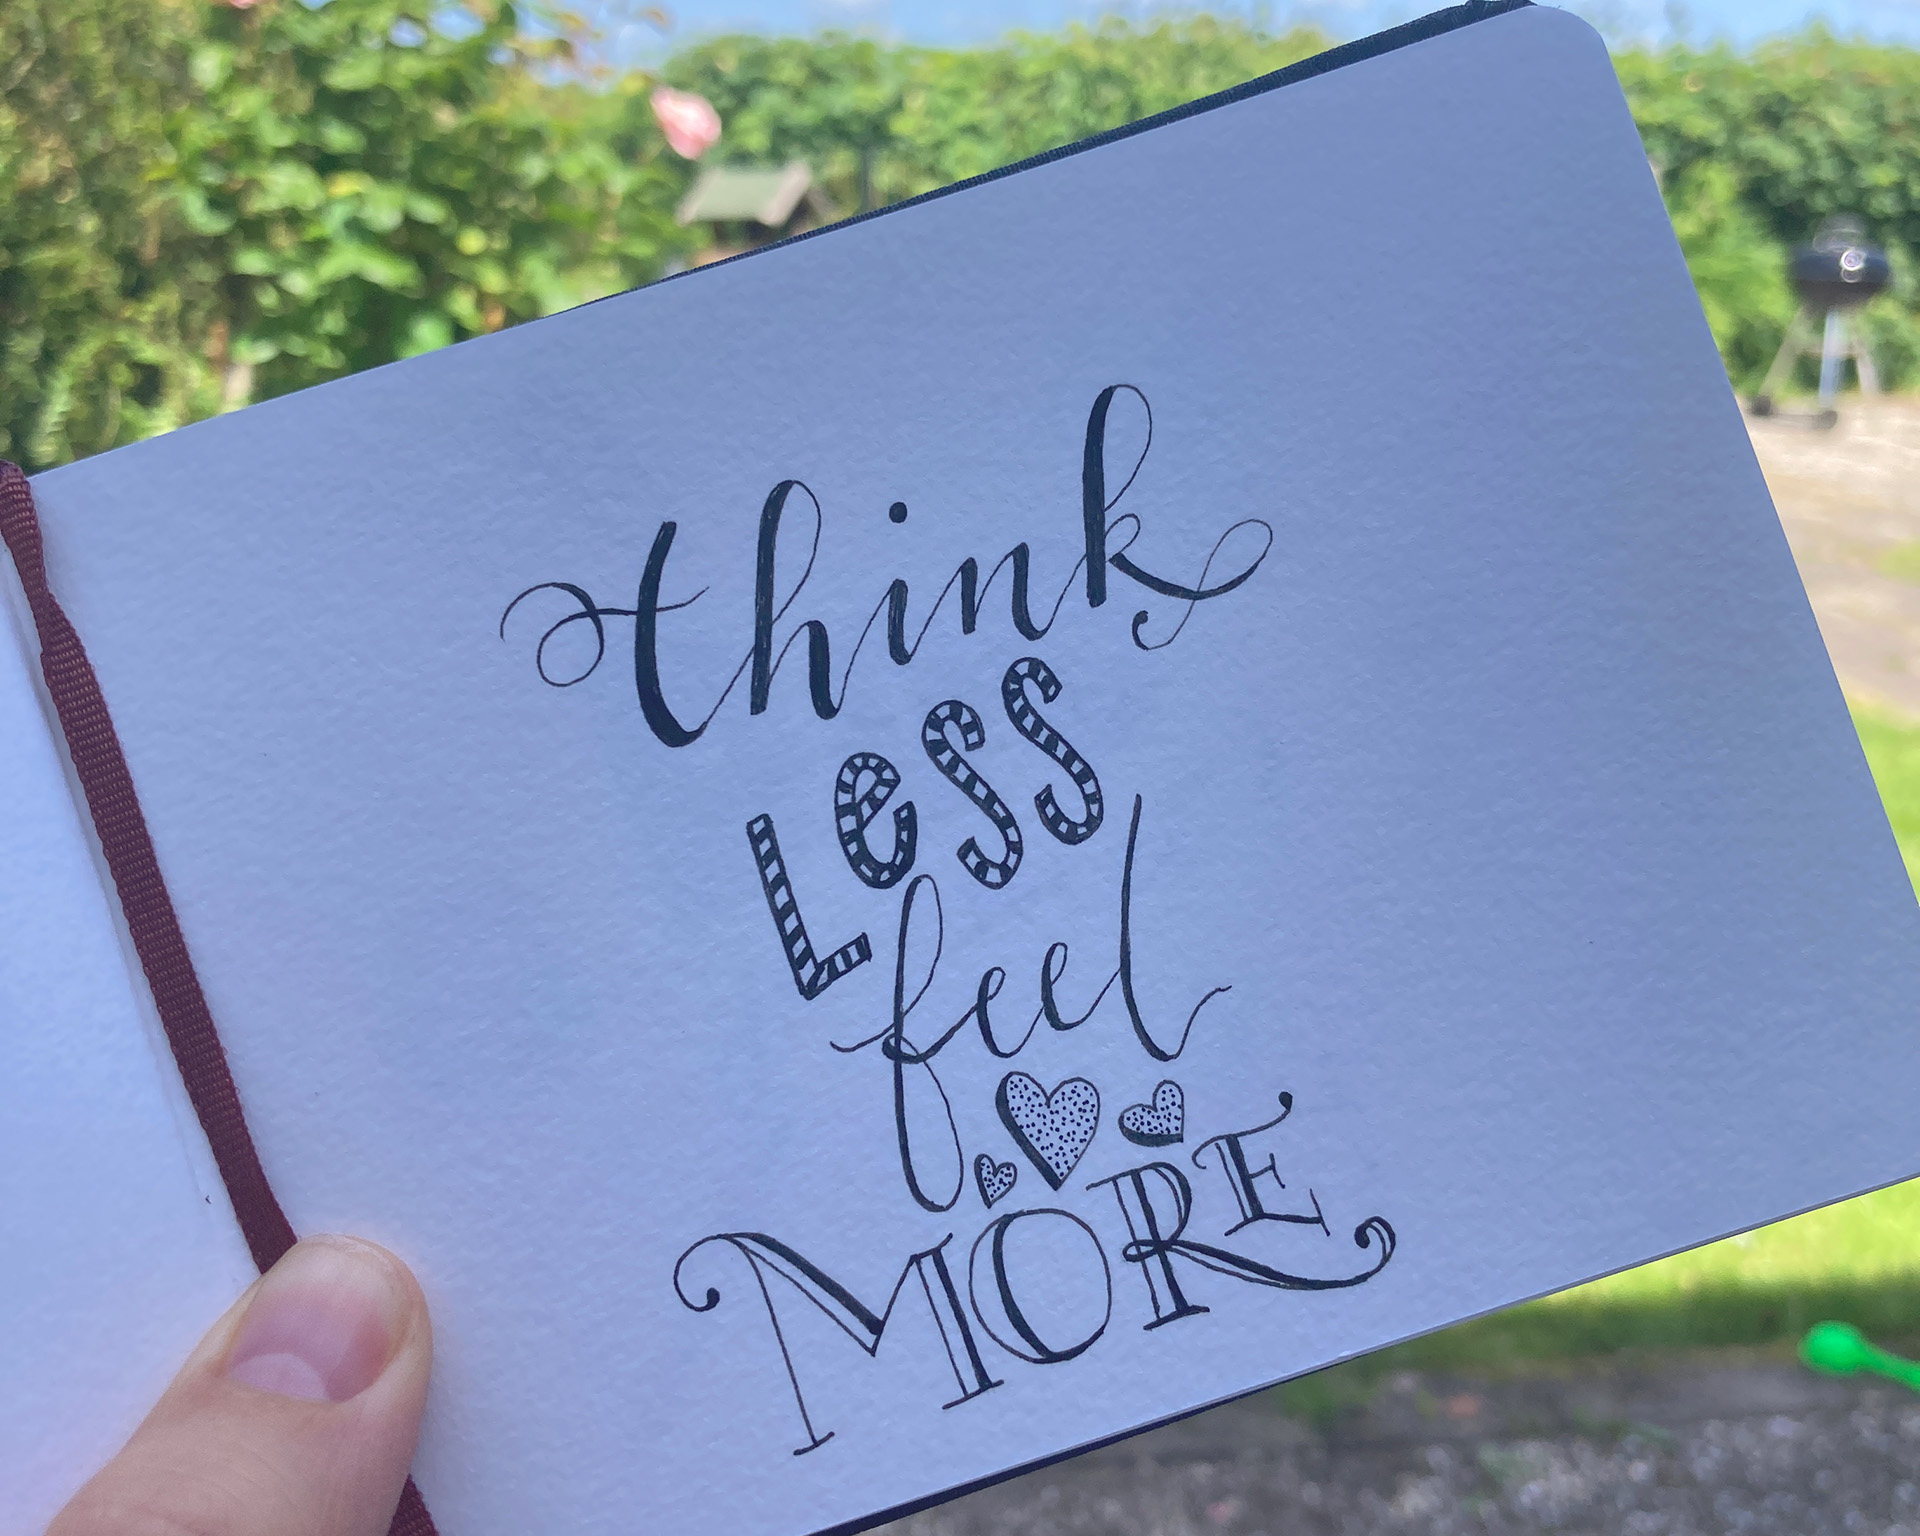 think
Less
feel
MORE